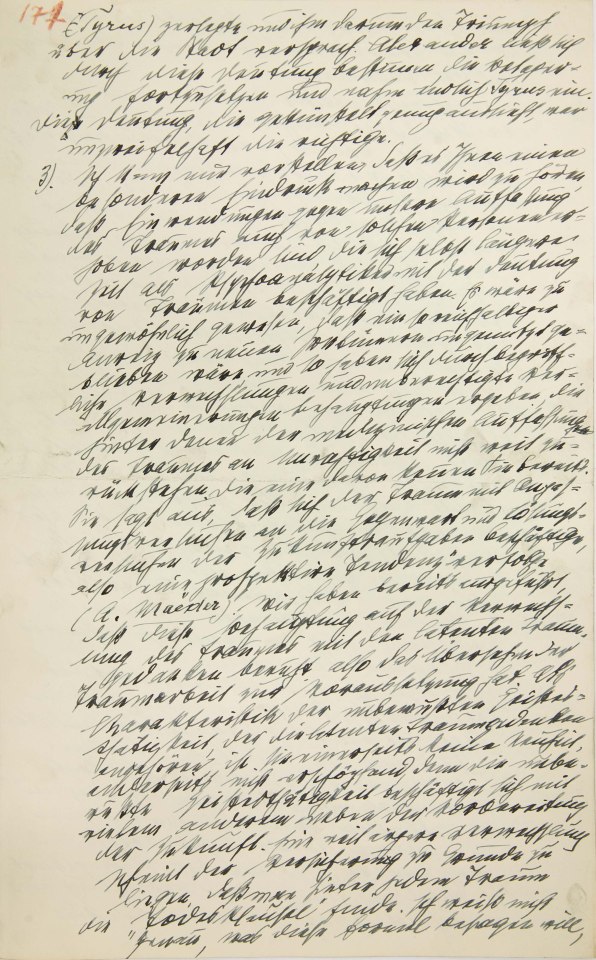 174
(= Tyrus) zerlegte und ihm darum den Triumpf
über die Stadt versprach. Alexander ließ sich
durch diese Deutung bestimmen die Belager-
ung fortzusetzen und nahm endlich Tyrus ein.
Diese Deutung, die gekünstelt genug aussieht, war
unzweifelhaft die richtige.
3). Ich kann mir vorstellen, daß es Ihnen einen
besonderen Eindruck machen wird zu hören,
daß Einwendungen gegen unsere Auffassung
des Traumes auch von solchen Personen er-
hoben worden sind die sich selbst längere
Zeit als Psychoanalytiker mit der Deutung
von Träumen beschäftigt haben. Es wäre zu
ungewöhnlich gewesen, daß ein so reichhaltiger
Anreiz zu neuen Irrtümern ungenützt ge-
blieben wäre und so haben sich durch begriff-
liche Verwechslungen und unberechtigte Ver-
allgemeinerungen Behauptungen ergeben, die
hinter denen der medizinischen Auffassung
des Traumes an Unrichtigkeit nicht weit zu-
rückstehen. Die eine davon kennen Sie bereits.
Sie sagt aus, daß sich der Traum mit Anpas-
sungsversuchen an die Gegenwart und Lösungs-
versuchen der Zukunftsaufgaben beschäftige,
also eine „prospektive Tendenz“ verfolge
(A. Maeder). Wir haben bereits angeführt,
daß diese Behauptung auf der Verwechs-
lung des Traumes mit den latenten Traum-
gedanken beruht also das Übersehen der
Traumarbeit zur Voraussetzung hat. Als
Charakteristik der unbewußten Geistes-
thätigkeit, der die latenten Traumgedanken
angehören ist sie einerseits keine Neuheit,
anderseits nicht erschöpfend, denn die unbe-
wußte Geistesthätigkeit beschäftigt sich mit
vielem anderem neben der Vorbereitung
der Zukunft. Eine weit ärgere Verwechslung
scheint der Versicherung zu Grunde zu
liegen, daß man hinter jedem Traum
die „Todesklausel“ finde. Ich weiß nicht
genau, was diese Formel besagen will,